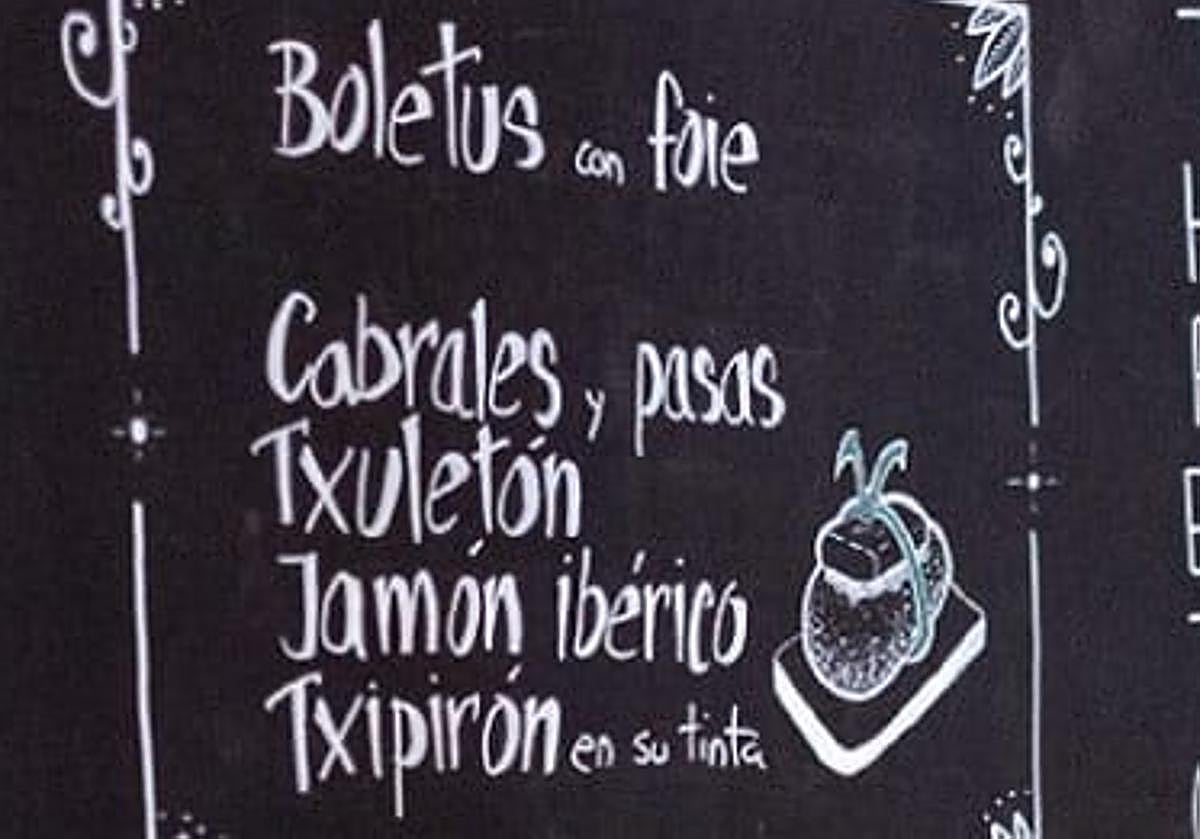 Boletus con foie
Cabrales y pasas
Txuletón
Jamón ibérico
Txipirón en su tinta